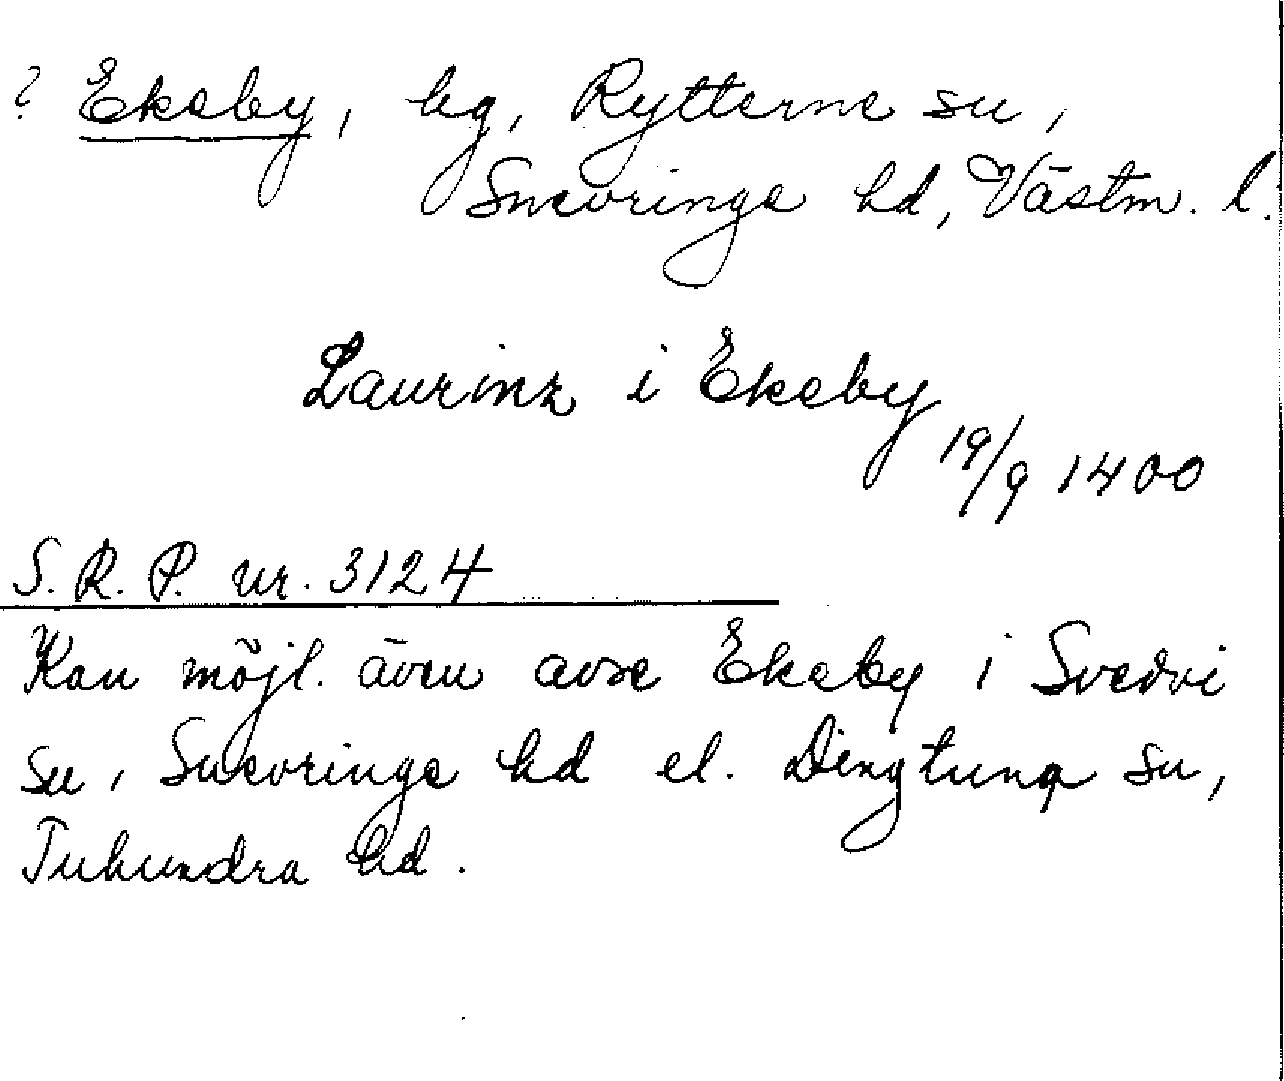 ? Ekeby, by, Rytterne sn,
Snevringe hd, Västm. l.
Laurinz i Ekeby
19/9 1400
S. R. P. nr. 3124
Kan möjl. även avse Ekeby i Svedvi
sn, Snevringe hd el. Dingtuna sn,
Tuhundra hd.